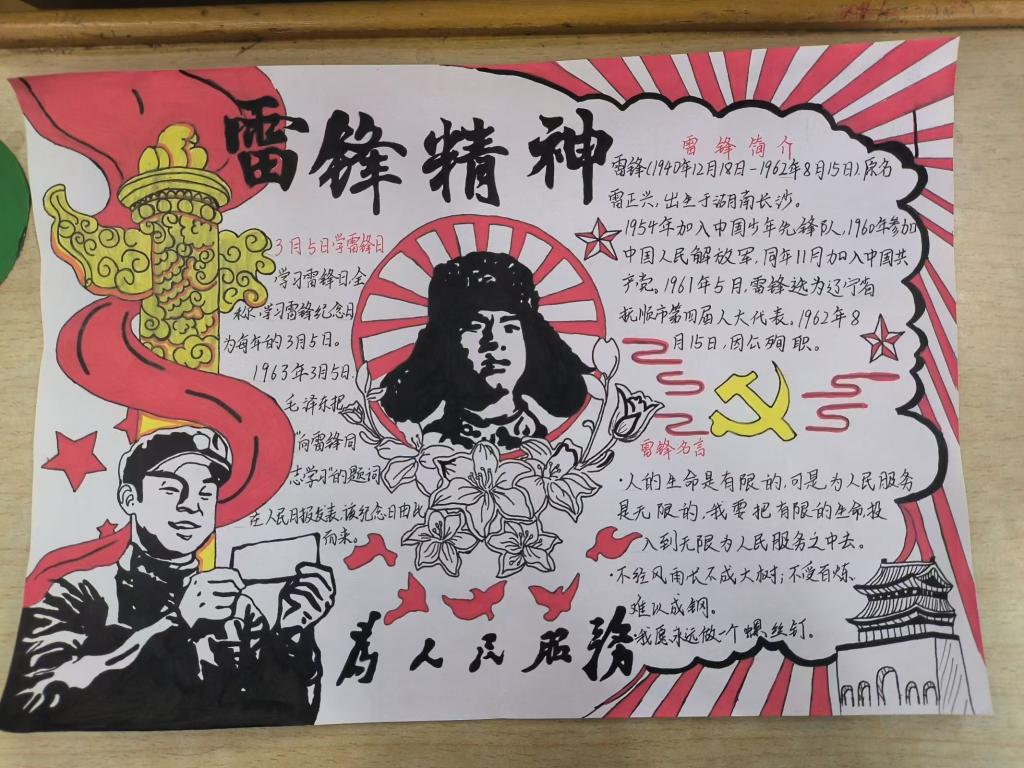 雷锋精神
3月5日学雷锋日
学习雷锋日全
称学习雷锋纪念日
为每年的3月5日。
1963年3月5日,
毛泽东把
“向雷锋同
志学习”的题词
在人民日报发表,该纪念日由此
而来。
雷锋简介
雷锋(1940年12月18日-1962年8月15日),原名
雷正兴,出生于湖南长沙。
1954年加入中国少年先锋队,1960年参加
中国人民解放军,同年11月加入中国共
产党。1961年5月,雷锋选为辽宁省
抚顺市第四届人大代表。1962年8
月15日,因公殉职。
雷锋名言
·人的生命是有限的,可是为人民服务
是无限的,我要把有限的生命,投
入到无限为人民服务之中去。
·不经风雨长不成大树;不受百炼,
难以成钢。
·我愿永远做一个螺丝钉。
为人民服務